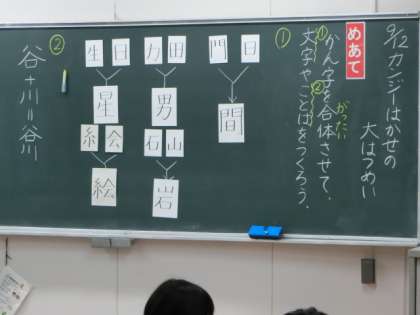 9/12 カンジーはかせの
大はつめい
めあて
かん字を合体させて、
がったい
文字やことばをつくろう。
①
②
①
門 日
間
力 田
男
石 山
岩
生 日
星
糸 会
絵
②
谷+川=谷川